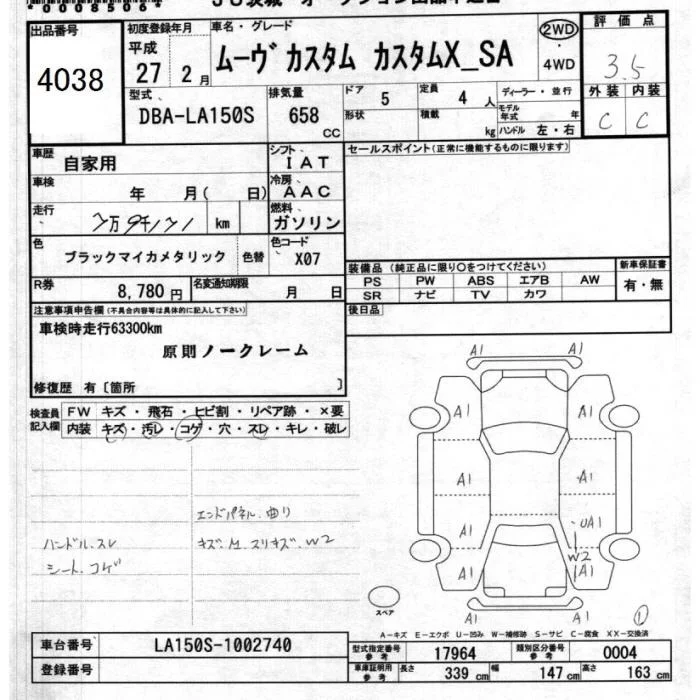 *00085064*
出品番号
4038
初度登録年月
平成
27 2月
車名・グレード
ムーヴ カスタム カスタムX_SA
2WD
・
4WD
評価点
3.5
外装 内装
C C
型式
DBA-LA150S
排気量
658
CC
ドア
5
定員
4 人
形状
積載
kg
ディーラー・並行
モデル年式
年
ハンドル 左・右
車歴
自家用
シフト
IAT
車検
年 月( 日)
冷房
AAC
走行
km
燃料
ガソリン
色
ブラックマイカメタリック
色替
色コード
X07
R券
8,780 円
名変通知期限
月 日
セールスポイント(正常に機能するものに限ります)
装備品 (純正品に限り○をつけてください)
PS PW ABS エアB AW
SR ナビ TV カワ
新車保証書
有・無
後日品
注意事項申告欄(不具合内容等は具体的に記入して下さい)
車検時走行63300km
原則ノークレーム
修復歴 有〔箇所 〕
検査員
記入欄
FW キズ・飛石・ヒビ割・リペア跡・×要
内装 キズ・汚レ・コゲ・穴・スレ・キレ・破レ
エンドパネル.曲リ
ハンドル.スレ
シート.コゲ
A1 A1
A1 A1
A1 A1
A1 UA1
W2
A1 A1
A1 A1
スペア
①
A-キズ E-エクボ U-凹み W-補修跡 S-サビ C-腐食 XX-交換済
車台番号
LA150S-1002740
登録番号
型式指定番号
参考
17964
類別区分番号
参考
0004
車庫証明用
参考
長さ
339 cm
幅
147 cm
高さ
163 cm